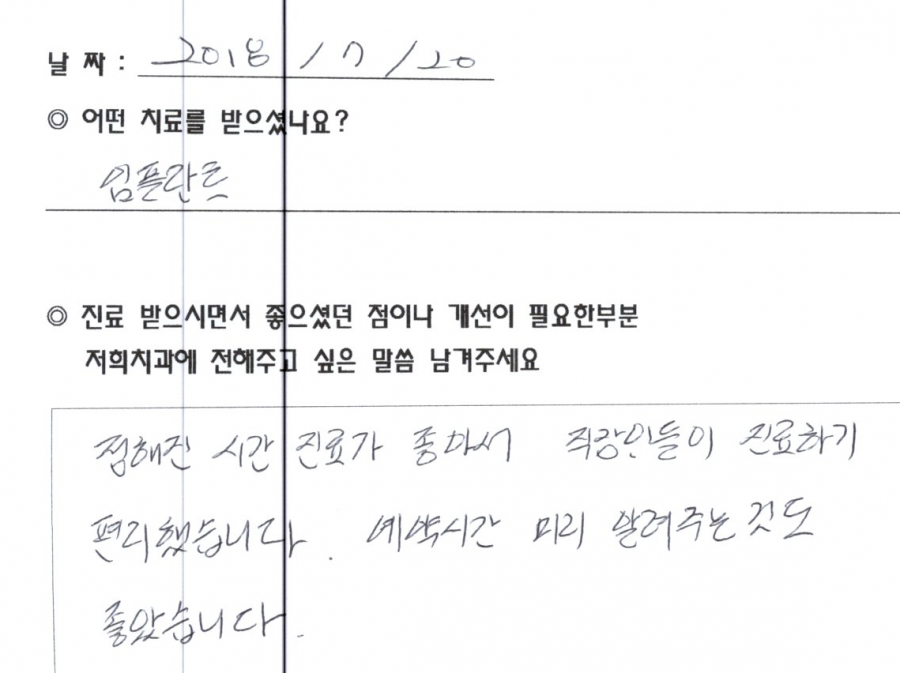 날 짜 : 2018 / 7 / 20
◎ 어떤 치료를 받으셨나요?
임플란트
◎ 진료 받으시면서 좋으셨던 점이나 개선이 필요한부분
저희치과에 전해주고 싶은 말씀 남겨주세요
정해진 시간 진료가 좋아서 직장인들이 진료하기
편리했습니다. 예약시간 미리 알려주는것도
좋았습니다.